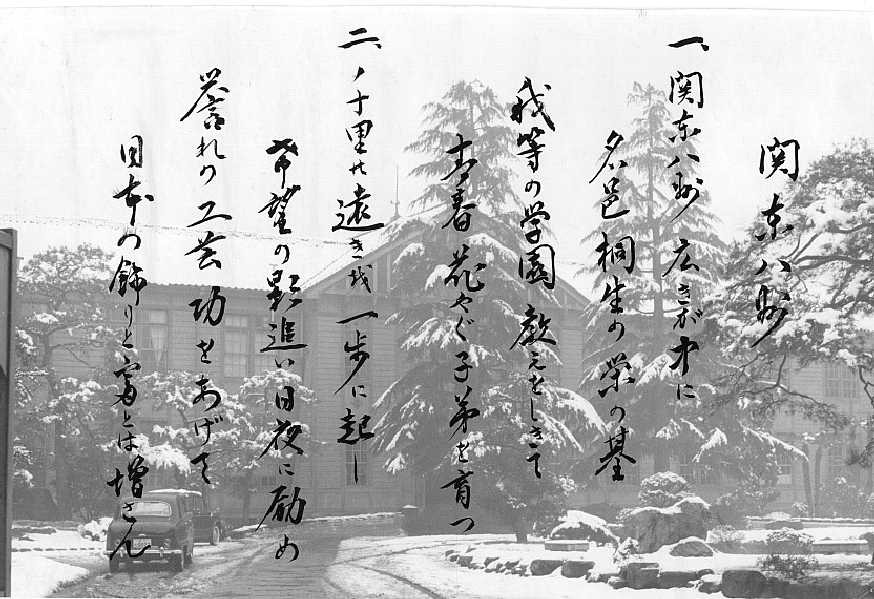 関東八州
一、関東八州広きが中に
名邑桐生の栄の基
我等の学園教えをしきて
青春花やぐ子弟を育つ
二、千里の遠きも一歩に起し
希望の影追い日夜に励め
誉れの工芸功をあげて
日本の飾りと富とは増さん